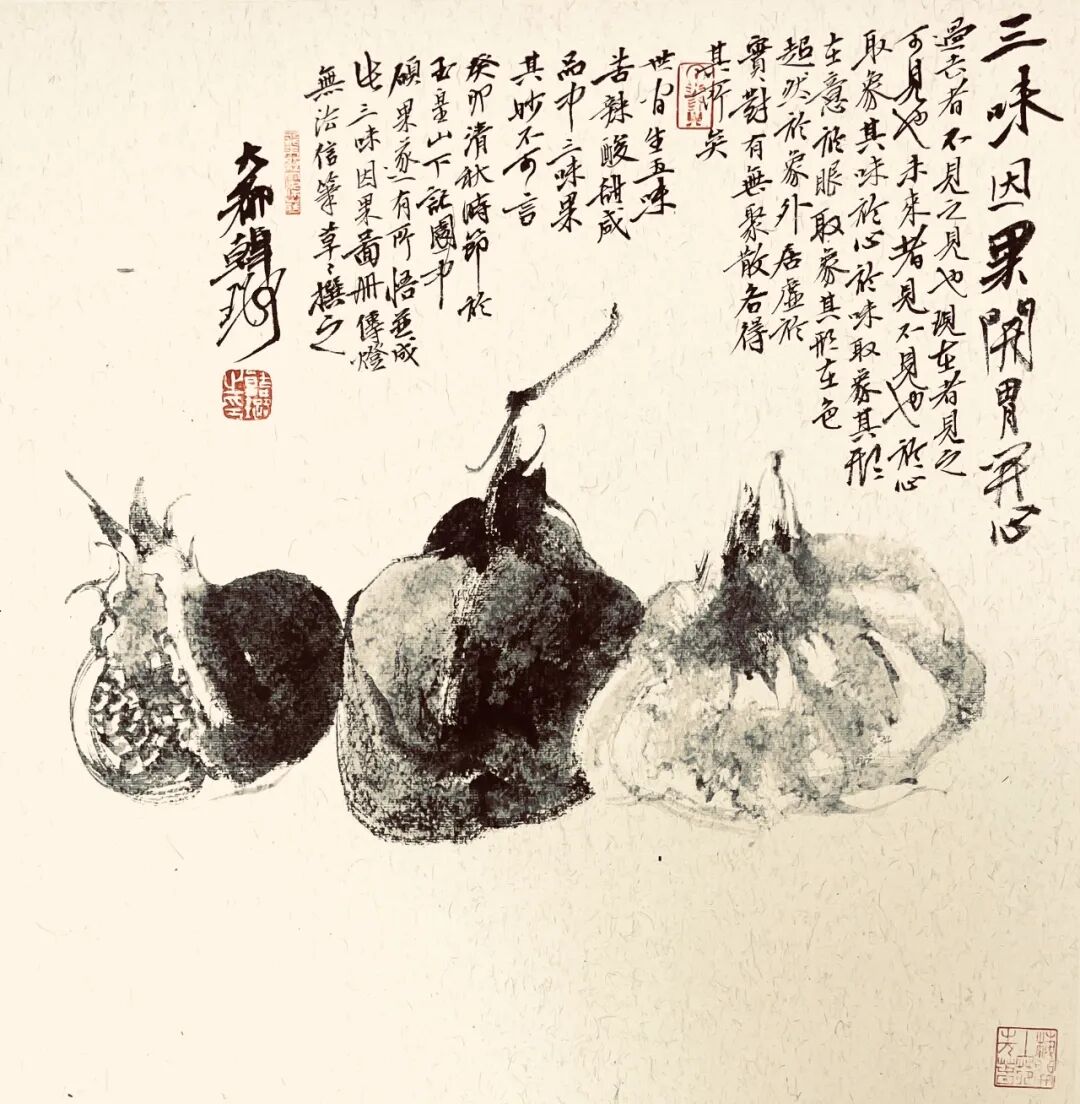 三味因果開胃開心
過去者不見之見也現在者見之
可見也未來者見不見也於心
取象其味於心於味取象其形
在意於眼取象其形在色
超然於象外居虛於
實對有無聚散各得
其所矣
世間生五味
苦辣酸甜咸
而中三味果
其妙不可言
癸卯清秋時節於
玉皇山下記園中
碩果遂有所悟並成
此三味因果畫册傳燈
無法信筆草々撰之
大